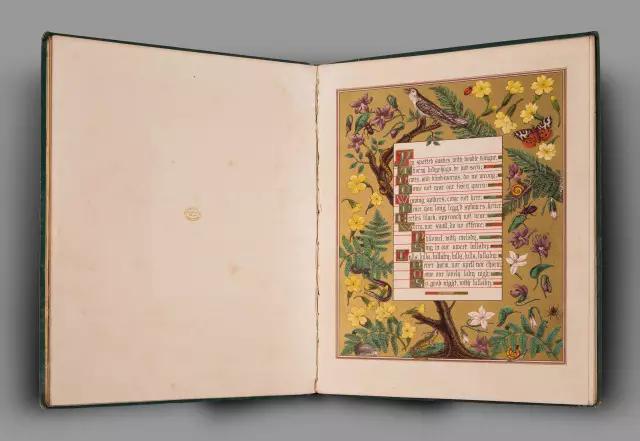 You spotted snakes, with double tongue,
Thorny hedgehogs, be not seen;
Newts, and blind-worms, do no wrong;
Come not near our fairy queen:
Weaving spiders, come not here;
Hence, you long legg'd spinners, hence;
Beetles black, approach not near;
Worm, nor snail, do no offence.
Philomel, with melody,
Sing in our sweet lullaby;
Lulla, lulla, lullaby; lulla, lulla, lullaby:
Never harm, nor spell nor charm,
Come our lovely lady nigh;
So good night, with lullaby.